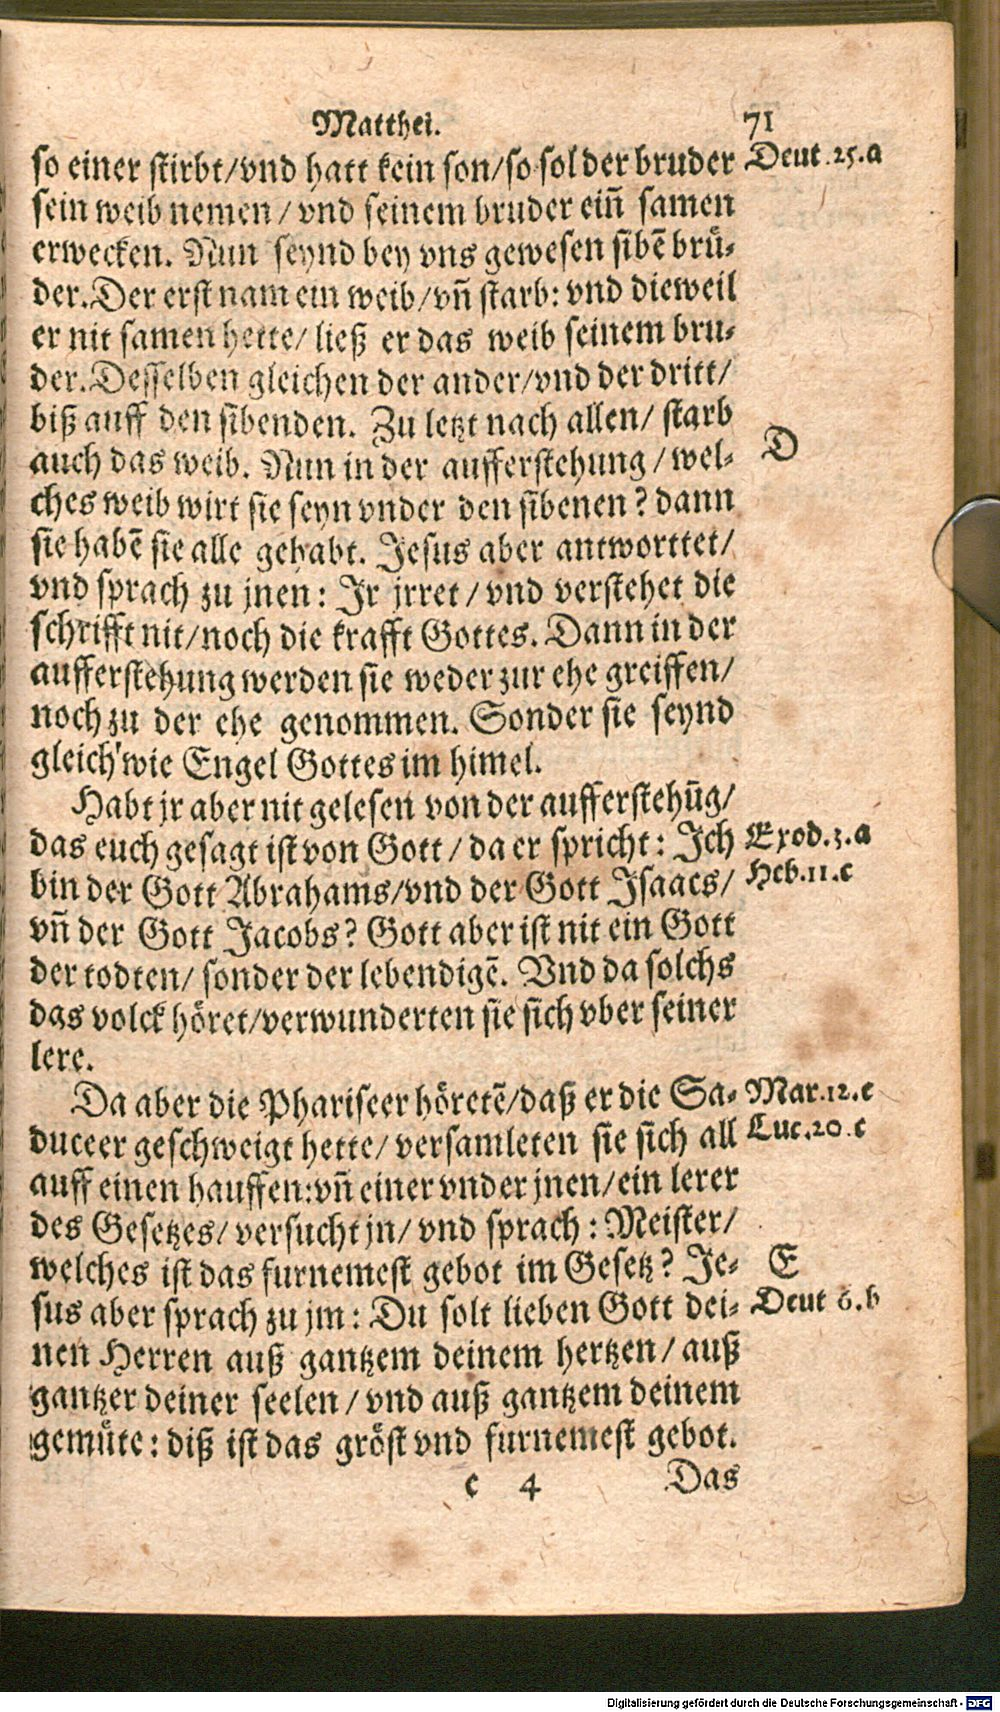 Matthei. 71
so einer stirbt/vnd hatt kein son/so sol der bruder Deut.25.a
sein weib nemen/ vnd seinem bruder eiñ samen
erwecken. Nun seynd bey vns gewesen sibẽ brů-
der.Der erst nam ein weib/vñ starb: vnd dieweil
er nit samen hette/ ließ er das weib seinem bru-
der.Desselben gleichen der ander/vnd der dritt/
biß auff den sibenden. Zu letzt nach allen/ starb
auch das weib. Nun in der aufferstehung/wel- D
ches weib wirt sie seyn vnder den sibenen? dann
sie habẽ sie alle gehabt. Jesus aber antworttet/
vnd sprach zu jnen: Ir jrret/ vnd verstehet die
schrifft nit/noch die krafft Gottes. Dann in der
aufferstehung werden sie weder zur ehe greiffen/
noch zu der ehe genommen. Sonder sie seynd
gleich wie Engel Gottes im himel.
Habt jr aber nit gelesen von der aufferstehũg/
das euch gesagt ist von Gott/ da er spricht: Ich Exod.3.a
bin der Gott Abrahams/vnd der Gott Isaacs/ Heb.11.c
vñ der Gott Jacobs? Gott aber ist nit ein Gott
der todten/ sonder der lebendigẽ. Vnd da solchs
das volck höret/verwunderten sie sich vber seiner
lere.
Da aber die Phariseer höretẽ/daß er die Sa- Mar.12.c
duceer geschweigt hette/ versamleten sie sich all Luc.20.c
auff einen hauffen:vñ einer vnder jnen/ein lerer
des Gesetzes/ versucht jn/ vnd sprach: Meister/
welches ist das furnemest gebot im Gesetz? Je- E
sus aber sprach zu jm: Du solt lieben Gott dei- Deut 6.b
nen Herren auß gantzem deinem hertzen/ auß
gantzer deiner seelen/ vnd auß gantzem deinem
gemüte: diß ist das gröst vnd furnemest gebot.
c 4 Das
Digitalisierung gefördert durch die Deutsche Forschungsgemeinschaft - DFG